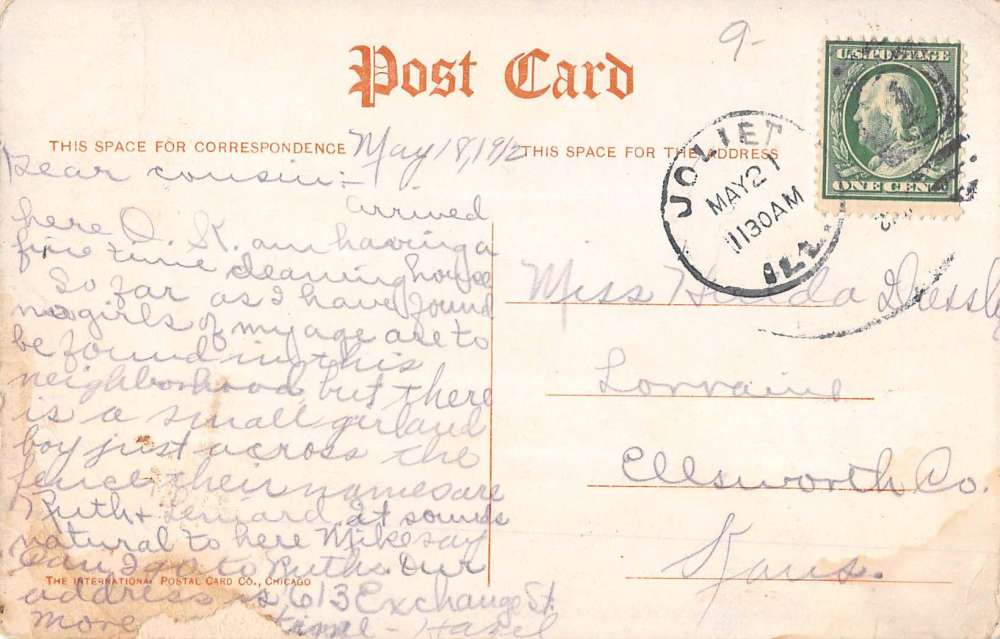 9-
Post Card
THIS SPACE FOR CORRESPONDENCE
May 18, 1912
THIS SPACE FOR THE ADDRESS
U.S. POSTAGE
ONE CENT
JOLIET
MAY 21
1130AM
ILL.
Dear cousin:-
arrived
here O. K. am having a
fine time cleaning house
So far as I have found
no girls of my age are to
be found in this
neighborhood but there
is a small girl and
boy just across the
fence their names are
Ruth + Lenard It sounds
natural to here Mike say
Can I go to Ruths. Our
address is 613 Exchange St.
more time - Hazel
THE INTERNATIONAL POSTAL CARD CO., CHICAGO
Miss Hulda
Lorraine
Ellsworth Co.
Kans.